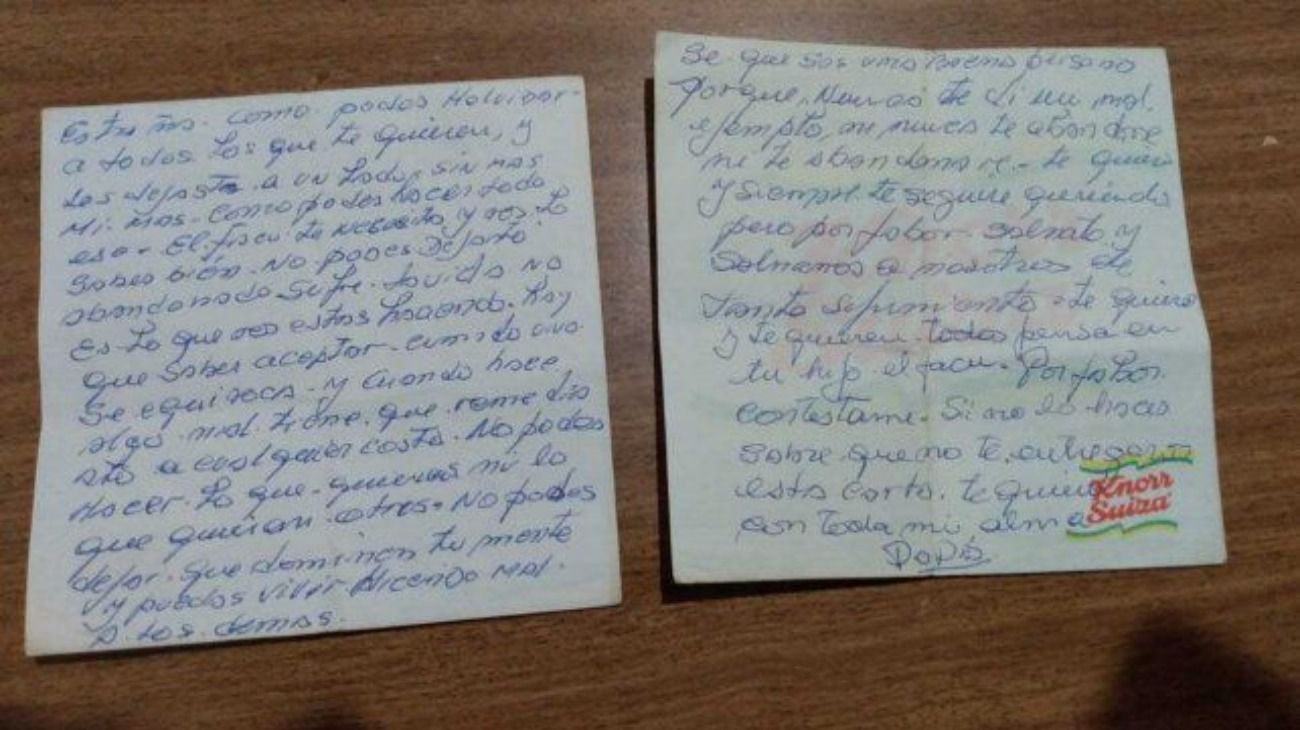 como podes Holvidar
a todos los que te quieren, y
los dejaste a un lado. sin mas
Mi. como podes hacer todo
eso - El te necesita y vos lo
sabes bién. No podes Dejarlo
abandonado sufre. La vida no
es lo que vos estas hacendo. Hay
que saber aceptar. cuando uno
se equivoca. y cuando hace
algo mal tiene que
a cualquier costo. No podes
Hacer lo que quieras ni lo
que quieran otros. No podes
dejar que dominen tu mente
y puedas vivir Hicendo Mal.
A los demas.
Se que sos una Buena persona
porque. Nunca te di un mal
ejemplo, ni nunca te abandone
ni te abandonare. te quiero
y siempre te seguire queriendo
pero por fabor salvalo y
Salvanos a nosotros de
Tanto sufrimiento. te quiero
y te quieren todos pensa en
tu hijo el facu. Por fabor
contestame. Si no lo haces
sobre que no te entregaron
esta carta. te quiero
con toda mi alma
Papá
Knorr
Suiza